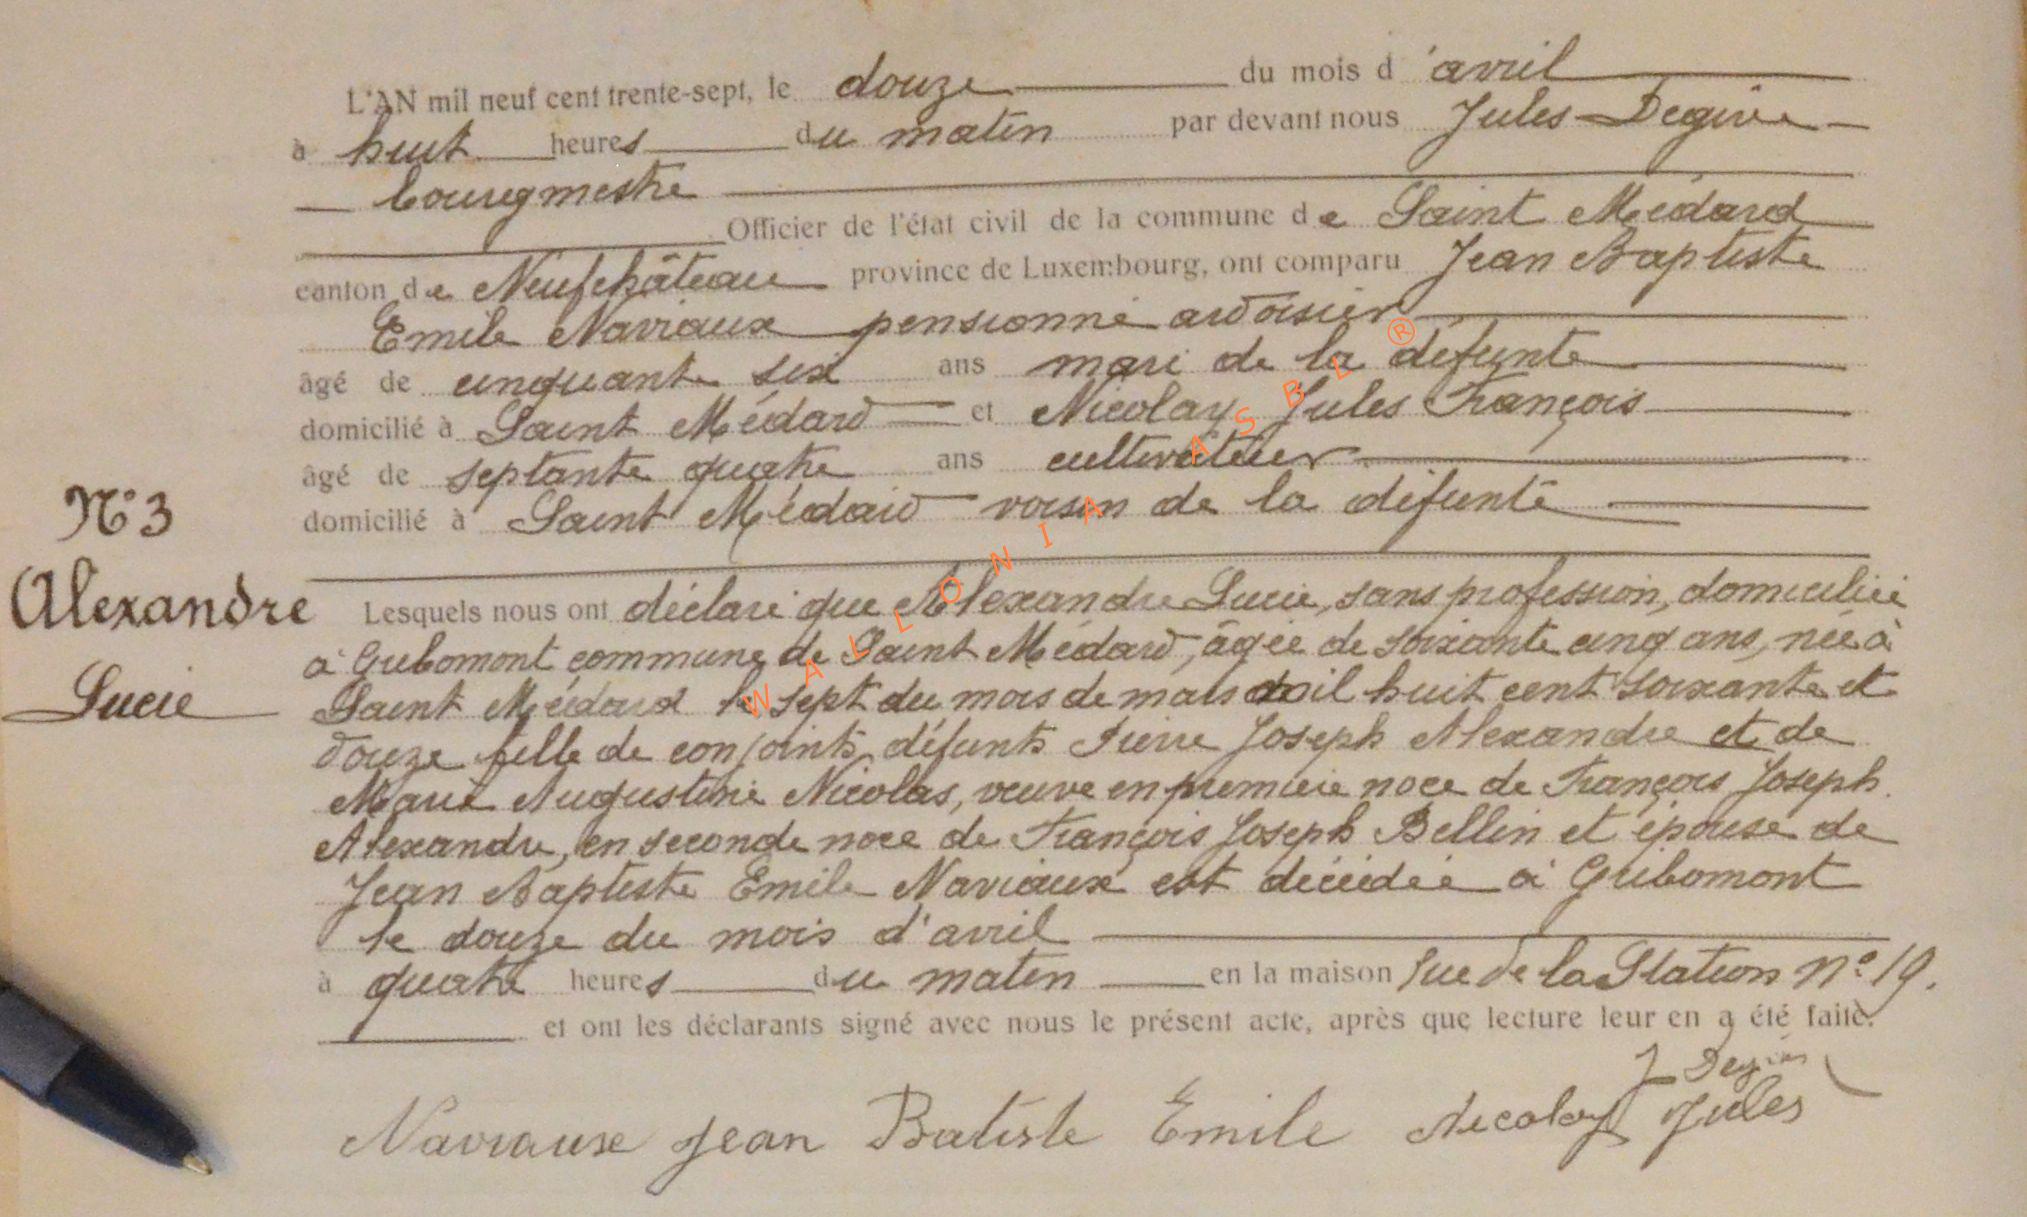 L'AN mil neuf cent trente-sept, le douze du mois d'avril
à huit heures du matin par devant nous Jules Degive
bourgmestre
Officier de l'état civil de la commune de Saint Médard
canton de Neufchâteau province de Luxembourg, ont comparu Jean Baptiste
Emile Naviaux pensionné ardoisier
âgé de cinquante six ans mari de la défunte
domicilié à Saint Médard et Nicolay Jules François
âgé de septante quatre ans cultivateur
domicilié à Saint Médard voisin de la défunte
N° 3
Alexandre
Lucie
Lesquels nous ont déclaré que Alexandre Lucie, sans profession, domiciliée
à Gribomont commune de Saint Médard, âgée de soixante cinq ans, née à
Saint Médard le sept du mois de mars mil huit cent soixante et
douze fille de conjoints défunts Pierre Joseph Alexandre et de
Marie Augustine Nicolas, veuve en première noce de François Joseph
Alexandre, en seconde noce de François Joseph Bellin et épouse de
Jean Baptiste Emile Naviaux est décédée à Gribomont
le douze du mois d'avril
à quatre heures du matin en la maison rue de la Station n° 19.
et ont les déclarants signé avec nous le présent acte, après que lecture leur en a été faite.
J Degive
Naviaux Jean Batiste Emile Nicolay Jules
WALLONIA ASBL ®